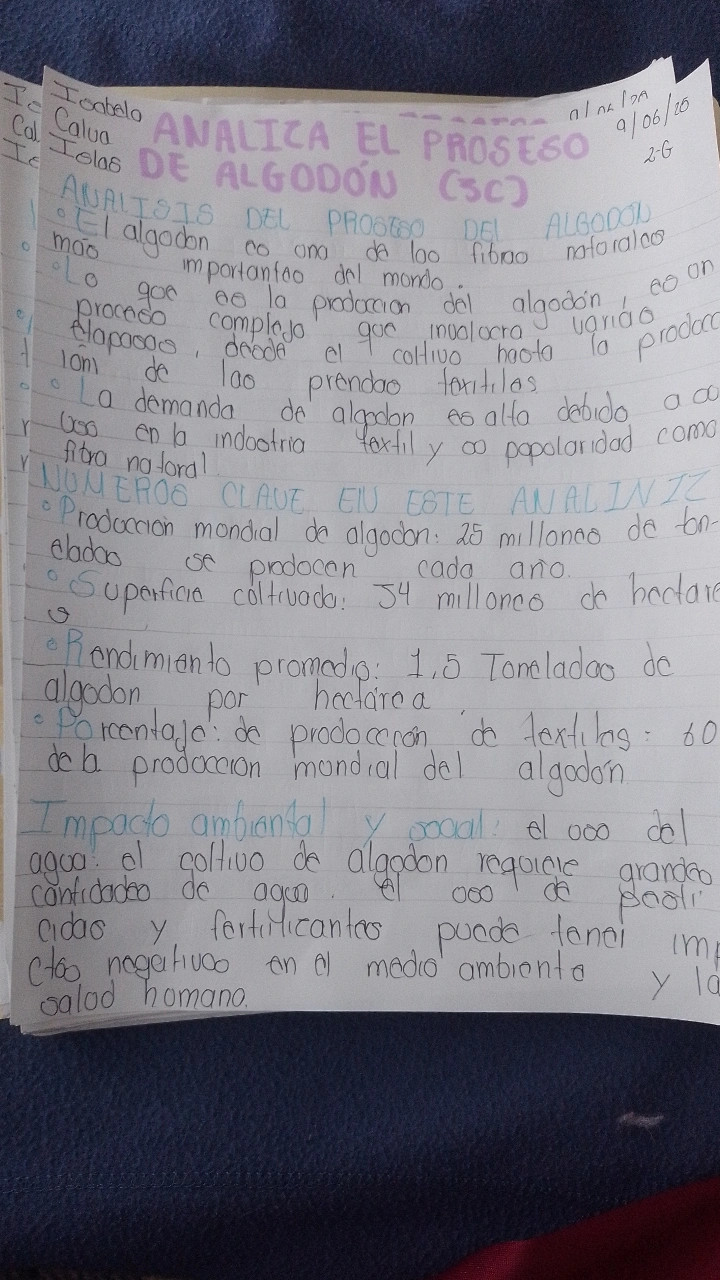 Isabela
Calva
Islas
9/06/26
2-G
ANALIZA EL PROSESO
DE ALGODÓN (SC)
ANALISIS DEL PROSESO DEL ALGODON
° El algodon es una de las fibras naturales
mas importantes del mundo.
° Lo que es la produccion del algodón, es un
proceso complejo que involucra varias
etapasas, desde el cultivo hasta la producc
ión de las prendas textiles
° La demanda de algodon es alta debido a su
uso en la industria textil y su popularidad como
fibra natural
NUMEROS CLAVE EN ESTE ANALINIZ
° Produccion mondial de algodon: 25 millones de ton-
eladas se producen cada año.
° Superficie coltivada: 34 millones de hectare
s
° Rendimiento promedio: 1,5 Toneladas de
algodon por hectárea
° Porcentaje: de produccion de textiles: 60
de la produccion mondial del algodón
Impacto ambiental y social: el uso del
agua: el coltivo de algodon requiere grandes
cantidades de agua. el uso de pesti
cidas y fertificantes puede tener imp
ctos negativos en el medio ambiente y la
salud humana.